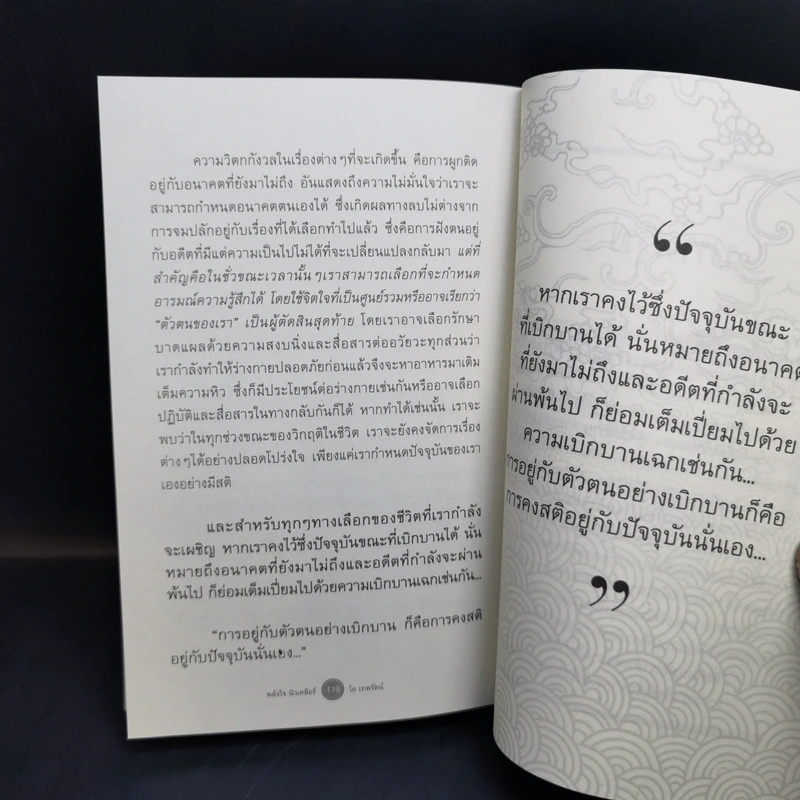 ความวิตกกังวลในเรื่องต่างๆที่จะเกิดขึ้น คือการผูกติด
อยู่กับอนาคตที่ยังมาไม่ถึง อันแสดงถึงความไม่มั่นใจว่าเราจะ
สามารถกำหนดอนาคตตนเองได้ ซึ่งเกิดผลทางลบไม่ต่างจาก
การจมปลักอยู่กับเรื่องที่ได้เลือกทำไปแล้ว ซึ่งคือการฝังตนอยู่
กับอดีตที่มีแต่ความเป็นไปไม่ได้ที่จะเปลี่ยนแปลงกลับมา แต่ที่
สำคัญคือในชั่วขณะเวลานั้นๆเราสามารถเลือกที่จะกำหนด
อารมณ์ความรู้สึกได้ โดยใช้จิตใจที่เป็นศูนย์รวมหรืออาจเรียกว่า
“ตัวตนของเรา” เป็นผู้ตัดสินสุดท้าย โดยเราอาจเลือกรักษา
บาดแผลด้วยความสงบนิ่งและสื่อสารต่ออวัยวะทุกส่วนว่า
เรากำลังทำให้ร่างกายปลอดภัยก่อนแล้วจึงจะหาอาหารมาเติม
เต็มความหิว ซึ่งก็มีประโยชน์ต่อร่างกายเช่นกันหรืออาจเลือก
ปฏิบัติและสื่อสารในทางกลับกันก็ได้ หากทำได้เช่นนั้น เราจะ
พบว่าในทุกช่วงขณะของวิกฤติในชีวิต เราจะยังคงจัดการเรื่อง
ต่างๆได้อย่างปลอดโปร่งใจ เพียงแค่เรากำหนดปัจจุบันของเรา
เองอย่างมีสติ
และสำหรับทุกๆทางเลือกของชีวิตที่เรากำลัง
จะเผชิญ หากเราคงไว้ซึ่งปัจจุบันขณะที่เบิกบานได้ นั่น
หมายถึงอนาคตที่ยังมาไม่ถึงและอดีตที่กำลังจะผ่าน
พ้นไป ก็ย่อมเต็มเปี่ยมไปด้วยความเบิกบานเฉกเช่นกัน...
“การอยู่กับตัวตนอย่างเบิกบาน ก็คือการคงสติ
อยู่กับปัจจุบันนั่นเอง...”
พลังใจ นิวเคลียร์ 138 โอ เทพรัตน์
“
หากเราคงไว้ซึ่งปัจจุบันขณะ
ที่เบิกบานได้ นั่นหมายถึงอนาคต
ที่ยังมาไม่ถึงและอดีตที่กำลังจะ
ผ่านพ้นไป ก็ย่อมเต็มเปี่ยมไปด้วย
ความเบิกบานเฉกเช่นกัน...
การอยู่กับตัวตนอย่างเบิกบานก็คือ
การคงสติอยู่กับปัจจุบันนั่นเอง...
”